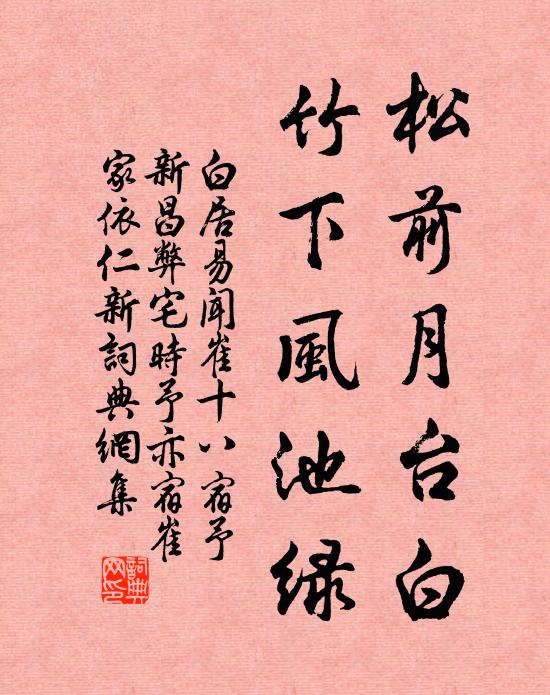 松前月台白
竹下風池綠
白居易聞崔十八宿予
新昌弊宅時予亦宿崔
家依仁新詞典網集
詞典
网印